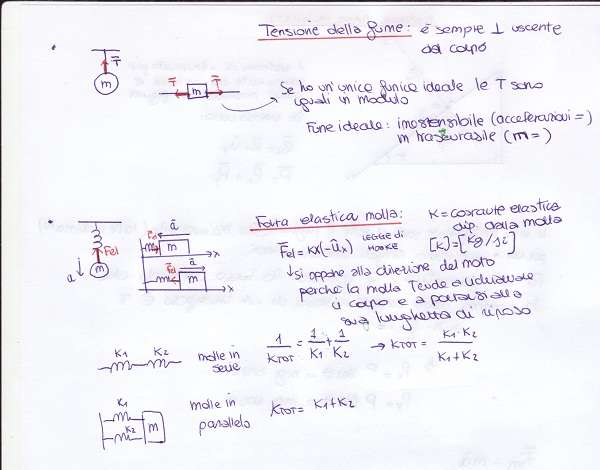 Tensione della fune: è sempre ⊥ uscente
del corpo
T
m
T m T
Se ho un'unica fune ideale le T sono
uguali in modulo
Fune ideale: inestensibile (accelerazioni =)
m trascurabile (m=)
Forza elastica molla:
K = costante elastica
dip. della molla
[K]=[kg/s2]
Fel = KX(-ûx) LEGGE DI
HOOKE
↓ si oppone alla direzione del moto
perché la molla tende a
il corpo e a portarsi alla
sua lunghezza di riposo
Fel
m
a
a
Fel m
x
a
Fel m
x
K1 K2
molle in
serie
1/KTOT = 1/K1 + 1/K2 → KTOT = K1·K2/K1+K2
K1
K2 m
molle in
parallelo
KTOT = K1+K2